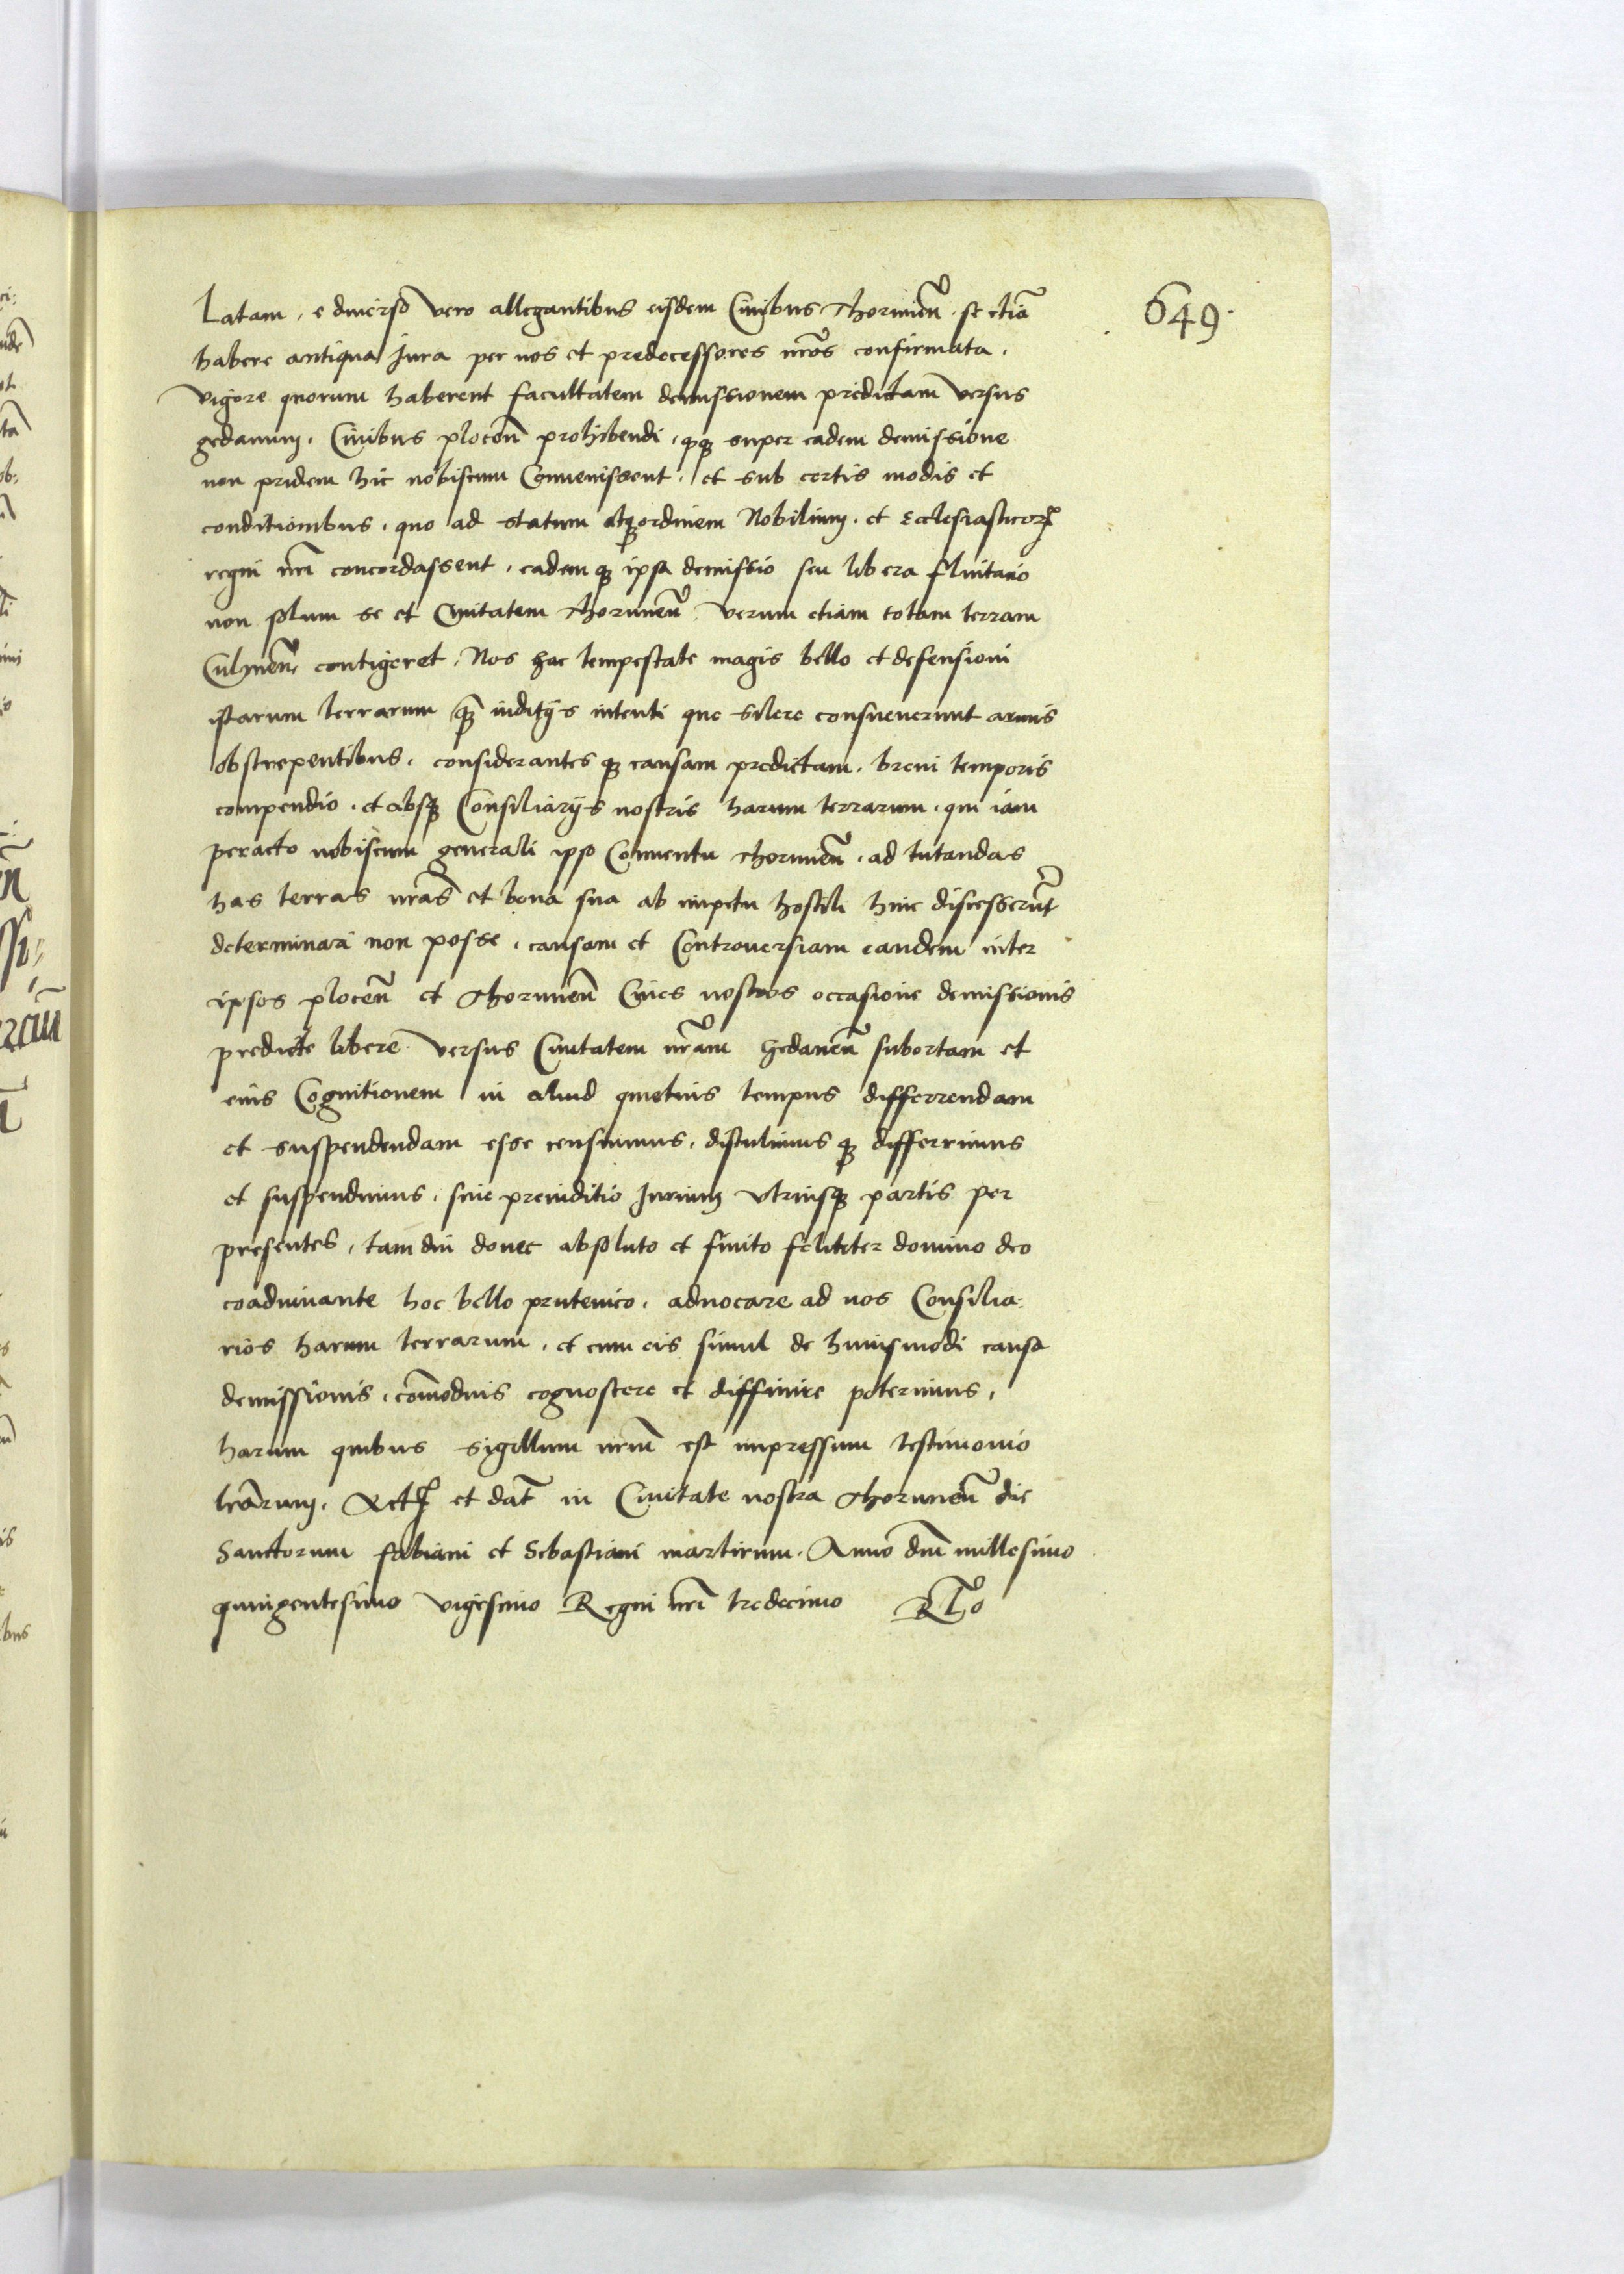 649.
Latam, e diuerso vero allegantibus eisdem Ciuibus Thorunen̄. se etiā
habere antiqua Jura per nos et predecessores nr̄os confirmata,
vigore quorum haberent facultatem demissionem predictam versus
gedanum, Ciuibus plocen̄ prohibendi, qꝫ super eadem demissione
non pridem hic nobiscum Conuenissent, et sub certis modis et
conditionibus, quo ad statum atqꝫ ordinem Nobilium, et Ecclesiasticorꝝ
regni nr̄i concordassent, eadem qꝫ ipsa demissio seu libera fluitatio
non solum se et Ciuitatem Thorunen̄. verum etiam totam terram
Culmen̄. contigeret, Nos hac tempestate magis bello et defensioni
istarum terrarum qꝫ̄ inditijs intenti que silere consueuerunt armis
obstrepentibus, considerantes qꝫ causam predictam, breui temporis
compendio, et absqꝫ Consiliarijs nostris harum terrarum, qui iam
peracto nobiscum generali ipso Conuentu Thorunen̄, ad tutandas
has terras nr̄as et bona sua ab impetu hostili hinc discesserūt
determinari non posse, causam et Controuersiam eandem inter
ipsos plocen̄ et Thorunen̄ Ciues nostros occasione demissionis
predicte libere versus Ciuitatem nr̄am Gedanen̄ subortam et
eius Cognitionem in aliud quietius tempus differrendam
et suspendendam esse censuimus, distulimus qꝫ differrimus
et suspendimus, sine preiuditio Jurium vtriusqꝫ partis per
presentes, tam diu donec absoluto et finito feliciter domino deo
coadiuuante hoc bello prutenico, aduocare ad nos Consilia-
rios harum terrarum, et cum eis simul de huiusmodi causa
demissionis, cōmodius cognoscere et diffinire poterimus,
harum quibus sigillum nr̄m est impressum testimonio
lr̄arum, Actꝝ et dat̄ in Ciuitate nostra Thorunen̄ die
Sanctorum fabiani et Sebastiani martirum. Anno dn̄i millesimo
quingentesimo vigesimo Regni nr̄i tredecimo